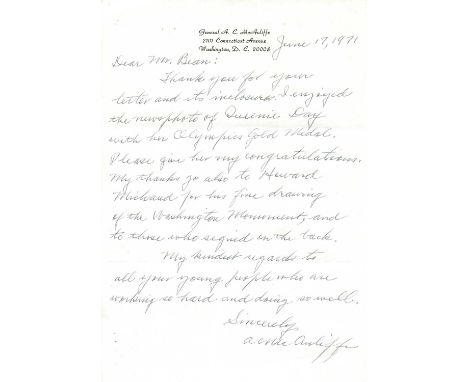 General A. C. MacAuliffe
2101 Connecticut Avenue
Washington, D. C. 20008
June 17, 1971
Dear Mr. Bean:
Thank you for your
letter and its inclosures. I enjoyed
the newsphoto of Queenie Day
with her Olympics Gold Medal.
Please give her my congratulations.
My thanks go also to Howard
Michaud for his fine drawing
of the Washington Monument, and
to those who signed on the back.
My kindest regards to
all your young people who are
working so hard and doing so well.
Sincerely,
A. C. McAuliffe